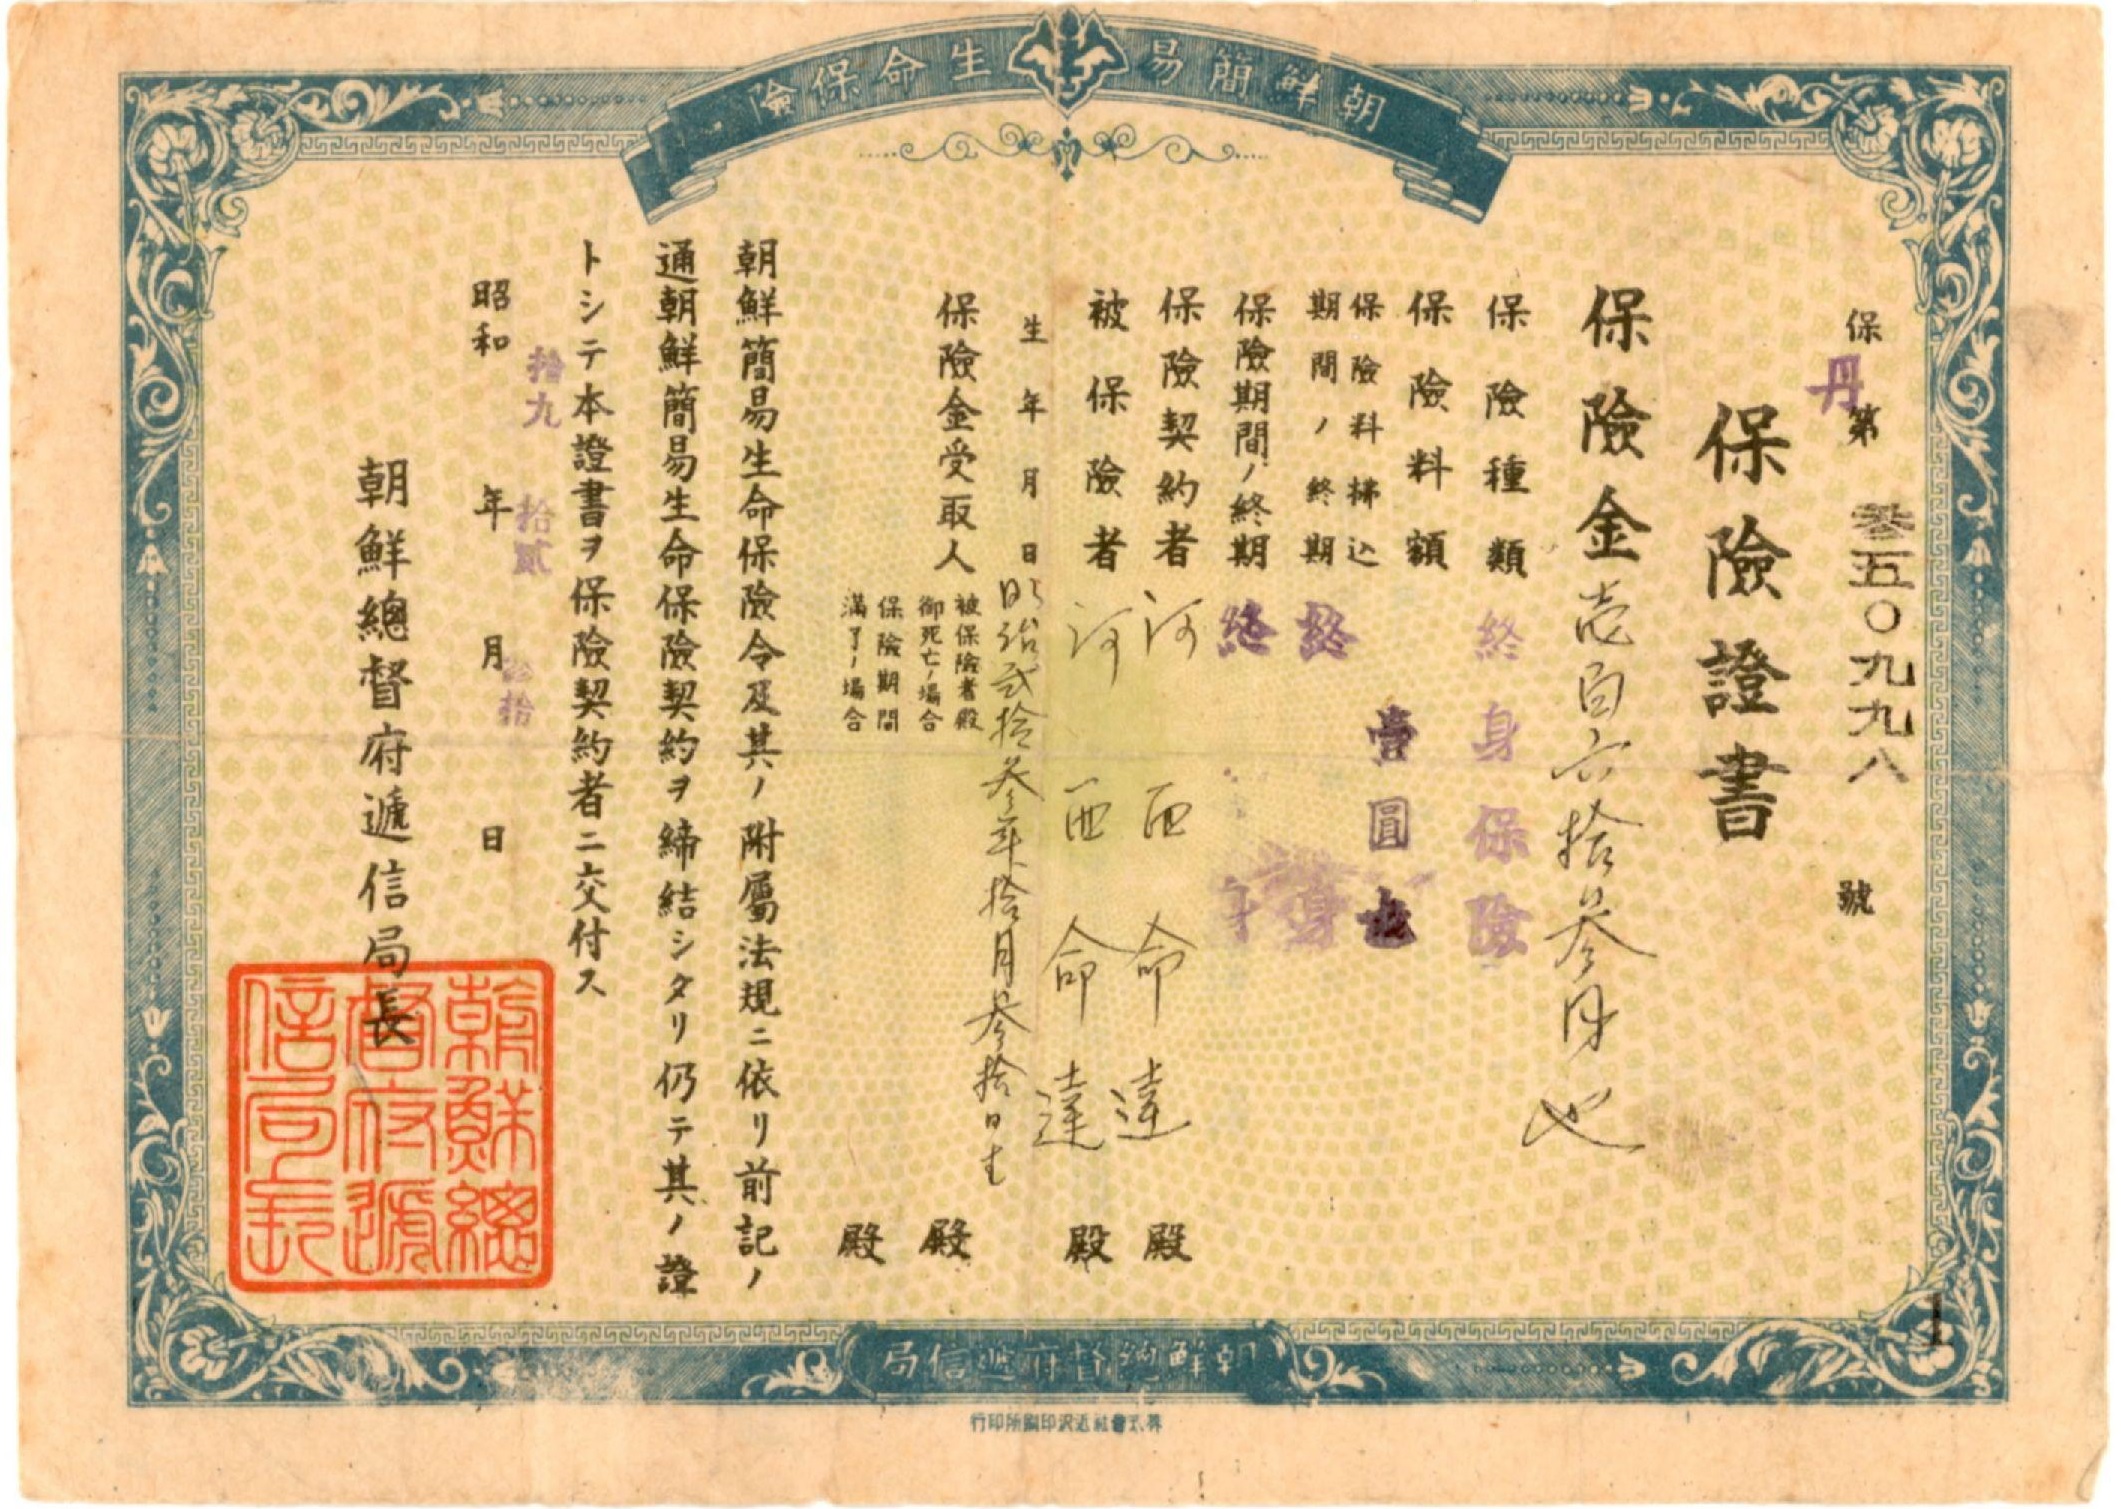 朝鮮簡易生命保險
保丹第參五〇九九八號
保險證書
保險金壱百六拾参円也
保險種類 終身保險
保險料額 壹圓也
保險料拂込期間ノ終期 終身
保險期間ノ終期 終身
保險契約者 河西命達殿
被保險者 河西命達殿
生年月日 明治弐拾参年拾月参拾日生
保險金受取人
被保險者殿御死亡ノ場合 殿
保險期間滿了ノ場合 殿
朝鮮簡易生命保險令及其ノ附屬法規ニ依リ前記ノ
通朝鮮簡易生命保險契約ヲ締結シタリ仍テ其ノ證
トシテ本證書ヲ保險契約者ニ交付ス
昭和拾九年拾貳月參拾日
朝鮮總督府遞信局長
朝鮮總督府遞信局長
朝鮮總督府遞信局
1